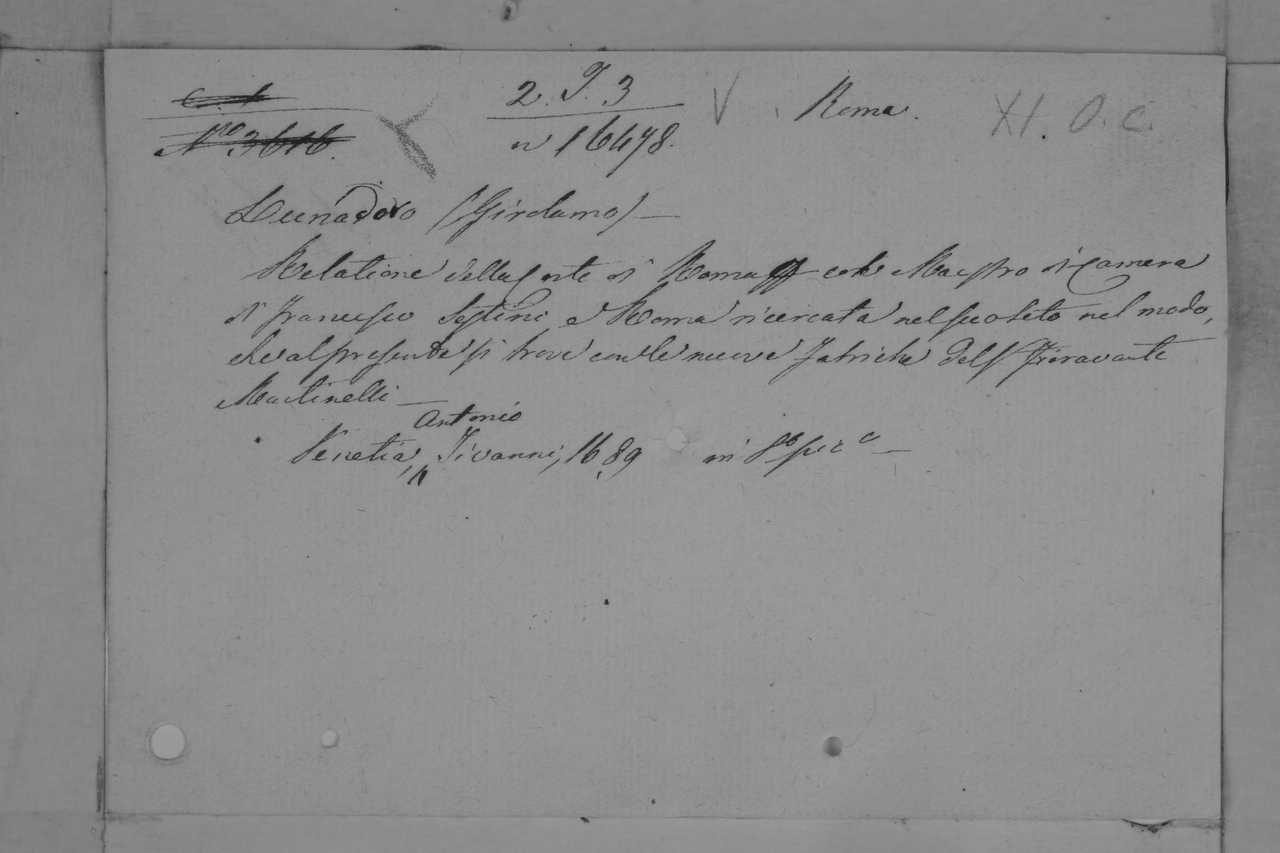 2. J. 3
V . Roma. XI. O. C.
N.ro 3616.
n 16478.
Lunadoro (Girolamo) —
Relatione della Corte di Roma col Maestro di Camera
di Francesco Sestini, e Roma ricercata nel suo sito nel modo,
che al presente si trova con le nuove fabriche del Sr Fioravante
Martinelli —
Antonio
Venetia, Tivanni, 1689 in 8o